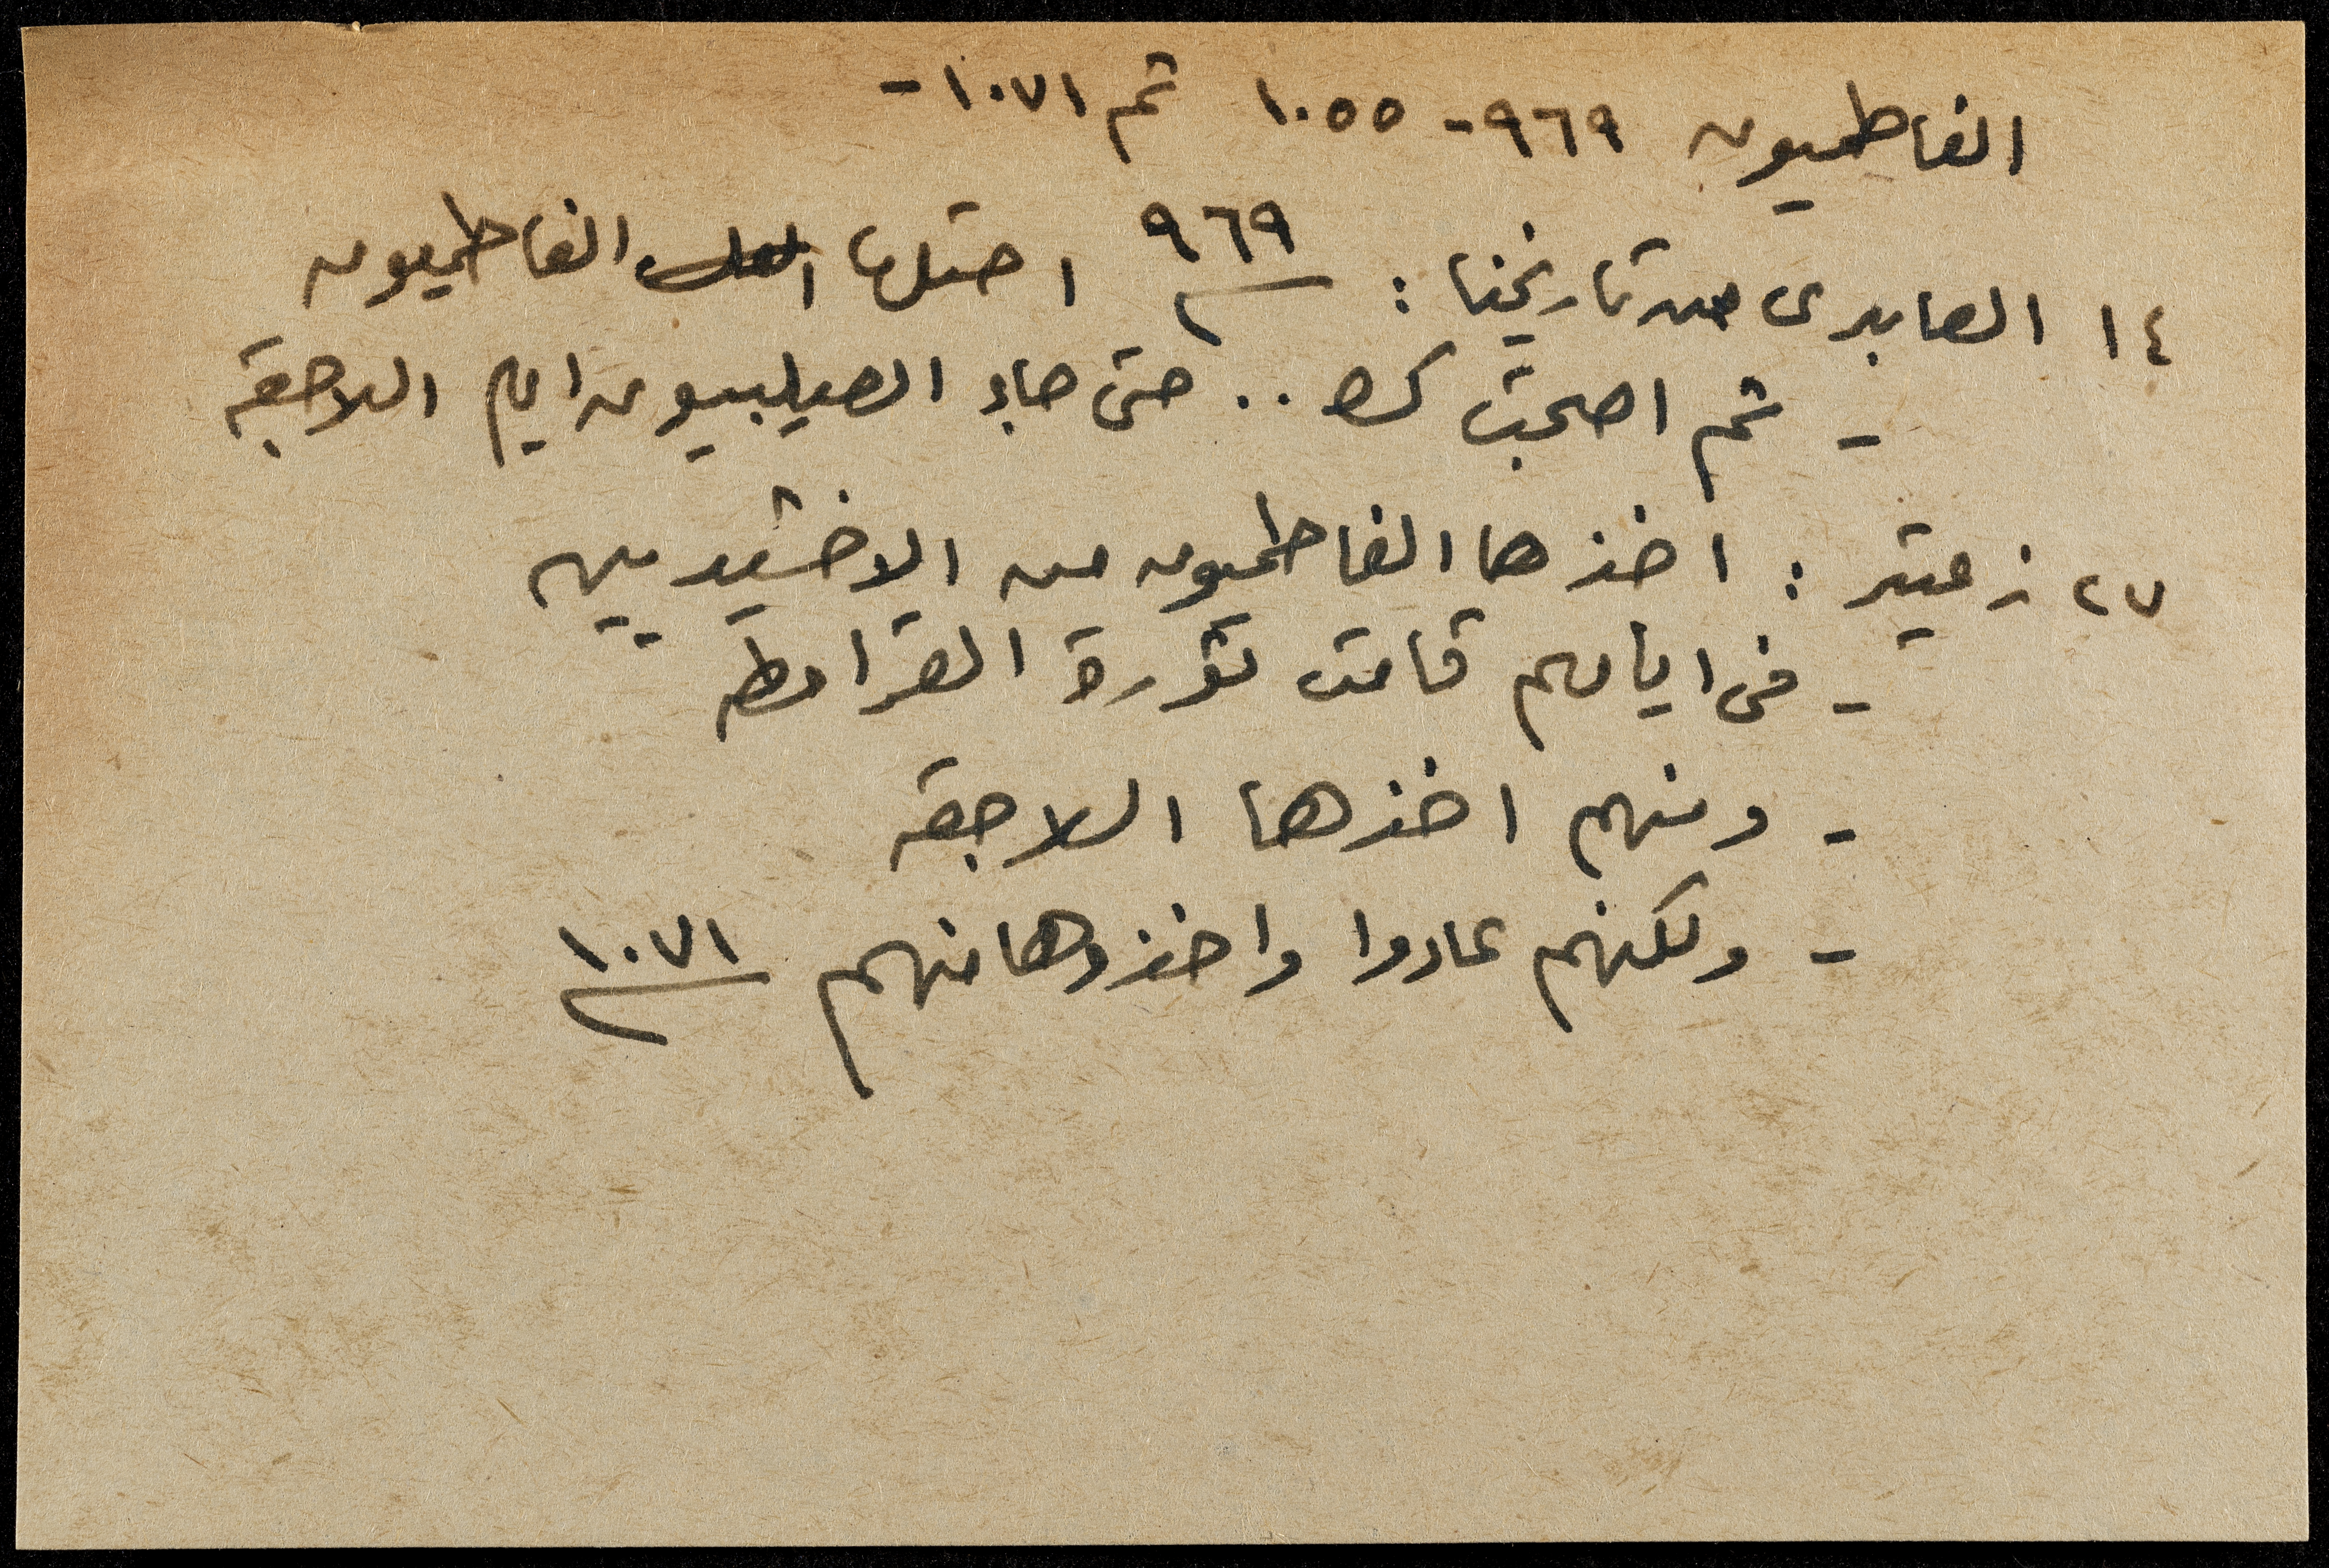 الفاطميون ٩٦٩ - ١٠٥٥ ثم ١٠٧١ -
١٤ العابدى من تاريخنا : ٩٦٩ احتلها الفاطميون
- ثم اصبحت .. حتى جاء الصليبيون ايام السلاجقة
٢٧ زعيتر : اخذها الفاطميون من الاخشيديين
- فى ايامهم قامت ثورة القرامطه
- ومنهم اخذها السلاجقه
- ولكنهم عادوا واخذوها منهم ١٠٧١